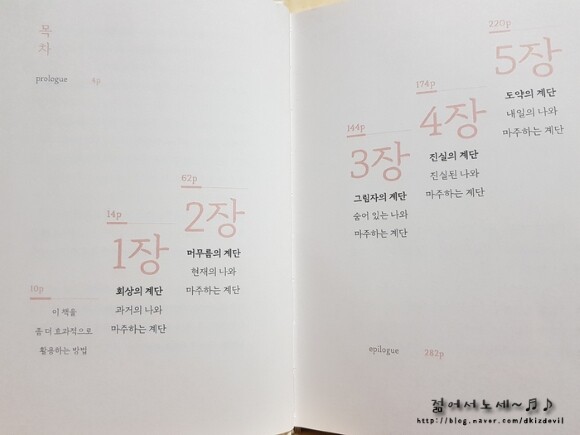 목
차
prologue 4p
10p
이 책을
좀 더 효과적으로
활용하는 방법
14p
1장
회상의 계단
과거의 나와
마주하는 계단
62p
2장
머무름의 계단
현재의 나와
마주하는 계단
144p
3장
그림자의 계단
숨어 있는 나와
마주하는 계단
174p
4장
진실의 계단
진실된 나와
마주하는 계단
220p
5장
도약의 계단
내일의 나와
마주하는 계단
epilogue 282p
젊어서노세~♬♪
http://blog.naver.com/dkizdevil